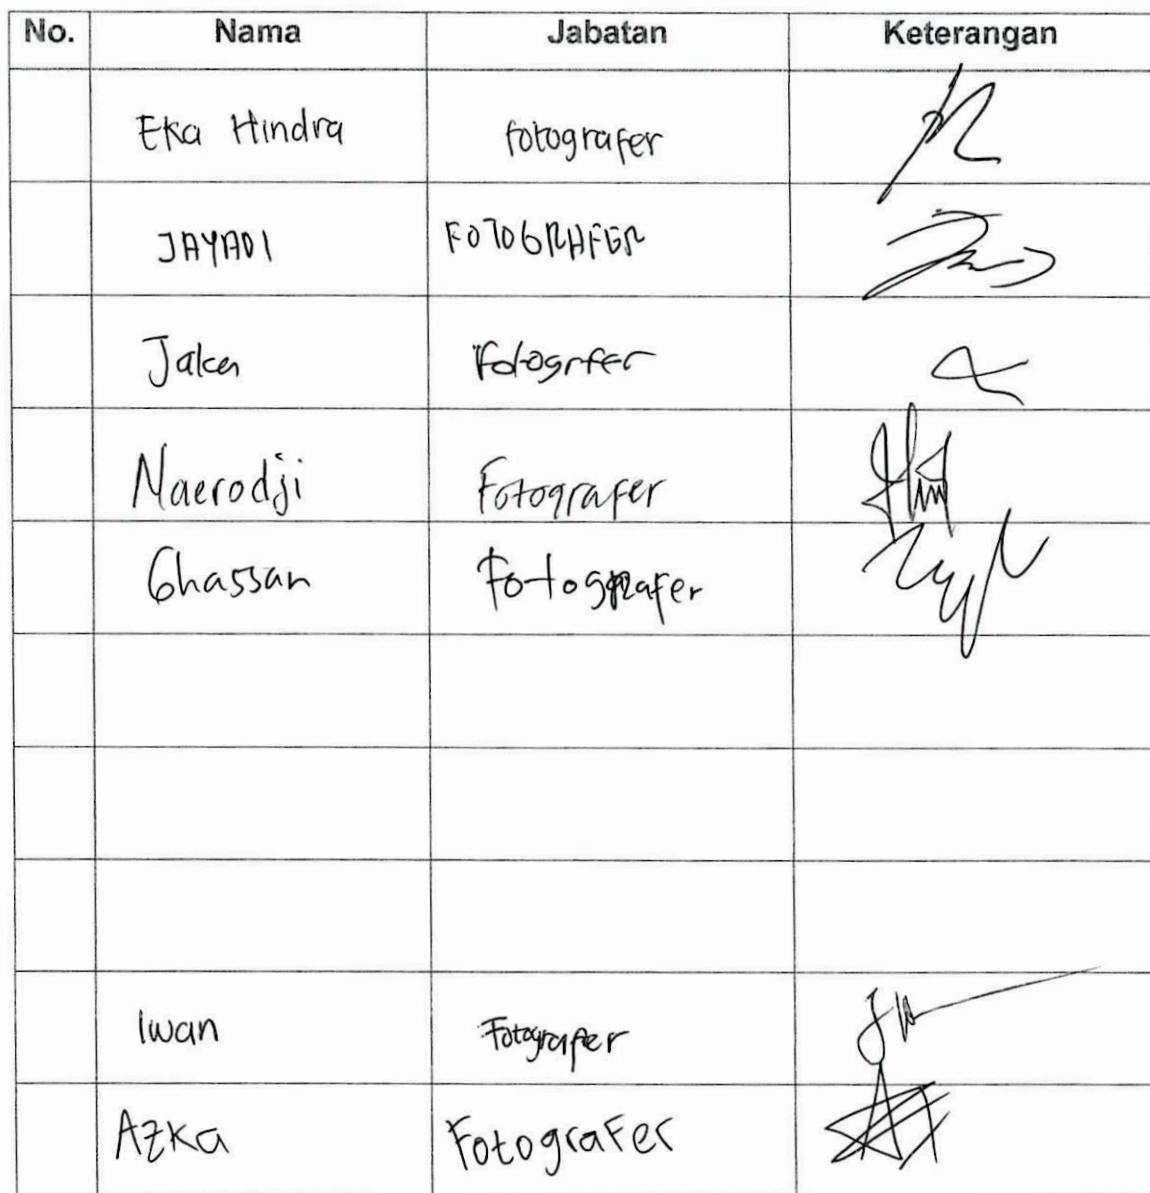 No. Nama Jabatan Keterangan
Eka Hindra fotografer
JAYADI FOTOGRAFER
Jaka Fotogrfer
Naerodji Fotografer
Ghassan Fotografer
Iwan Fotografer
Azka Fotografer